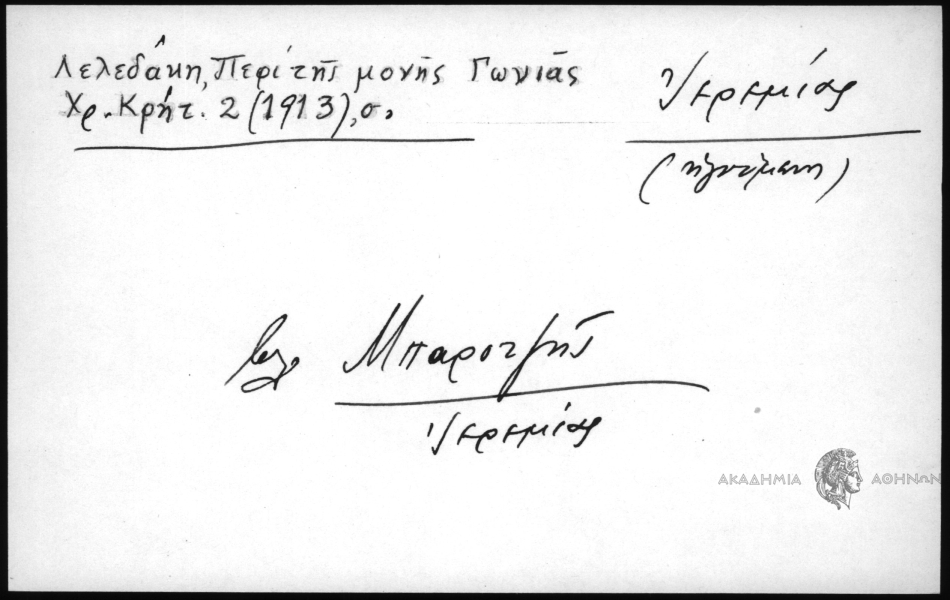 Λελεδάκη, Περί τῆς μονῆς Γωνιᾶς
Χρ. Κρήτ. 2 (1913), σ.
Ἱερεμίας
(ἡγούμενος)
βλ. Μπαροτζῆς
Ἱερεμίας
ΑΚΑΔΗΜΙΑ ΑΘΗΝΩΝ